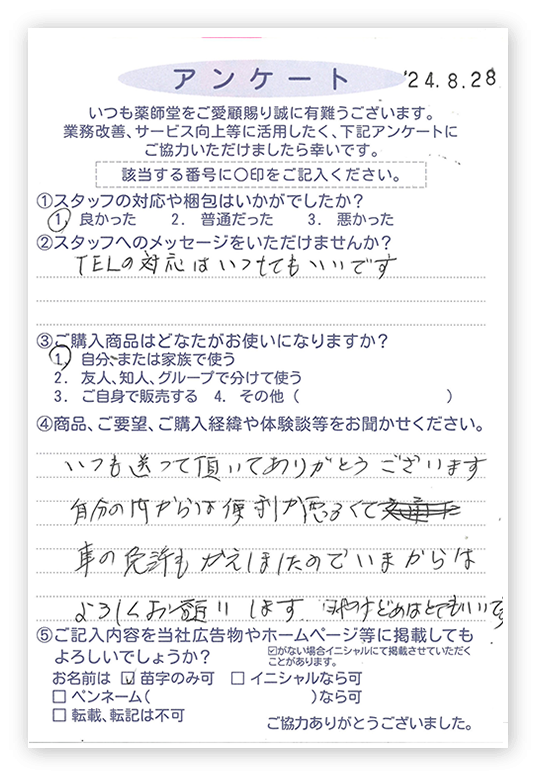 アンケート
'24.8.28
いつも薬師堂をご愛顧賜り誠に有難うございます。
業務改善、サービス向上等に活用したく、下記アンケートに
ご協力いただけましたら幸いです。
該当する番号に〇印をご記入ください。
①スタッフの対応や梱包はいかがでしたか?
1. 良かった 2. 普通だった 3. 悪かった
②スタッフへのメッセージをいただけませんか?
TELの対応はいつもてもいいです
③ご購入商品はどなたがお使いになりますか?
1. 自分、または家族で使う
2. 友人、知人、グループで分けて使う
3. ご自身で販売する 4. その他( )
④商品、ご要望、ご購入経緯や体験談等をお聞かせください。
いつも送って頂いてありがとうございます
自分の内からは便利が悪るくて
車の免許もかえしましたのでいまからは
よろしくお願いします はとてもいいです
⑤ご記入内容を当社広告物やホームページ等に掲載しても
よろしいでしょうか?
☑がない場合イニシャルにて掲載させていただく
ことがあります。
お名前は ☑ 苗字のみ可 □ イニシャルなら可
□ ペンネーム( )なら可
□ 転載、転記は不可
ご協力ありがとうございました。